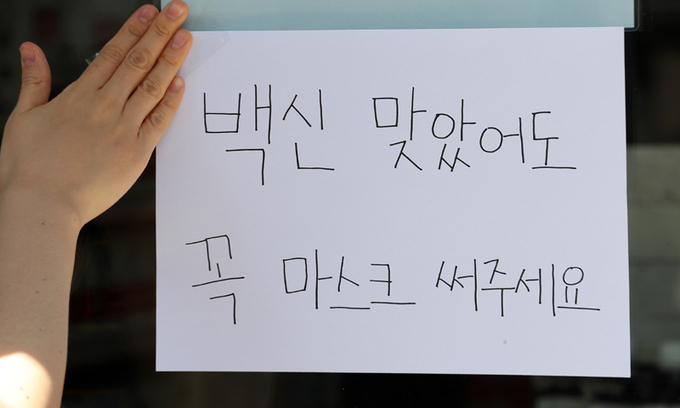 백신 맞았어도
꼭 마스크 써주세요